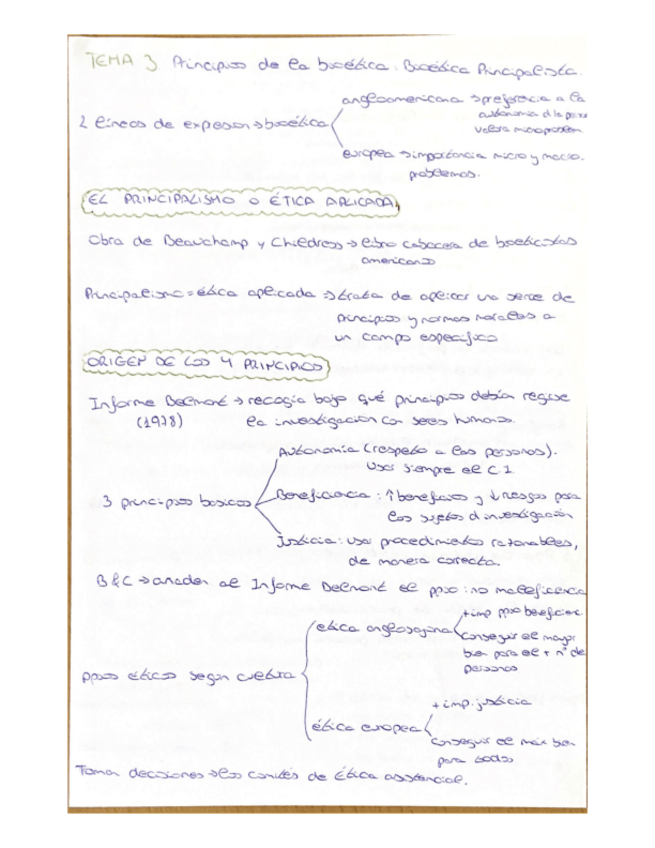 TEMA 3 Principios de la bioética. Bioética Principalista.
angloamericana → preferencia a la
autonomía d la pers
2 líneas de expresion → bioética
valora microproblem
europea → importancia micro y macro.
problemas.
EL PRINCIPALISMO O ÉTICA APLICADA
Obra de Beauchamp y Childress → libro cabecera de bioeticistas
americanos
Principalismo = ética aplicada → trata de aplicar una serie de
principios y normas morales a
un campo especifico
ORIGEN DE LOS 4 PRINCIPIOS
Informe Belmont → recogia bajo qué principios debían regirse
(1978) la investigación con seres humanos.
Autonomía (respeto a las personas).
Usar siempre el C.I
3 principios basicos
Beneficencia: ↑ beneficios y ↓ riesgos para
los sujetos d investigación
Justicia: usar procedimientos razonables,
de manera correcta.
B&C → añaden al Informe Belmont el ppio: no maleficencia
+ imp ppio beneficenc.
etica anglosajona
conseguir el mayor
bien para el + nº de
personas
ppios éticos segun cultura
+ imp. justicia
ética europea
conseguir el más bien
para todos
Toman decisiones → los comités de ética asistencial.